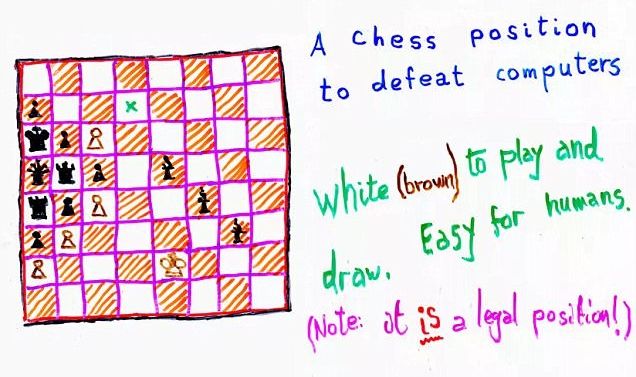 A chess position
to defeat computers
White (brown) to play and
draw. Easy for humans.
(Note: it is a legal position!)
x